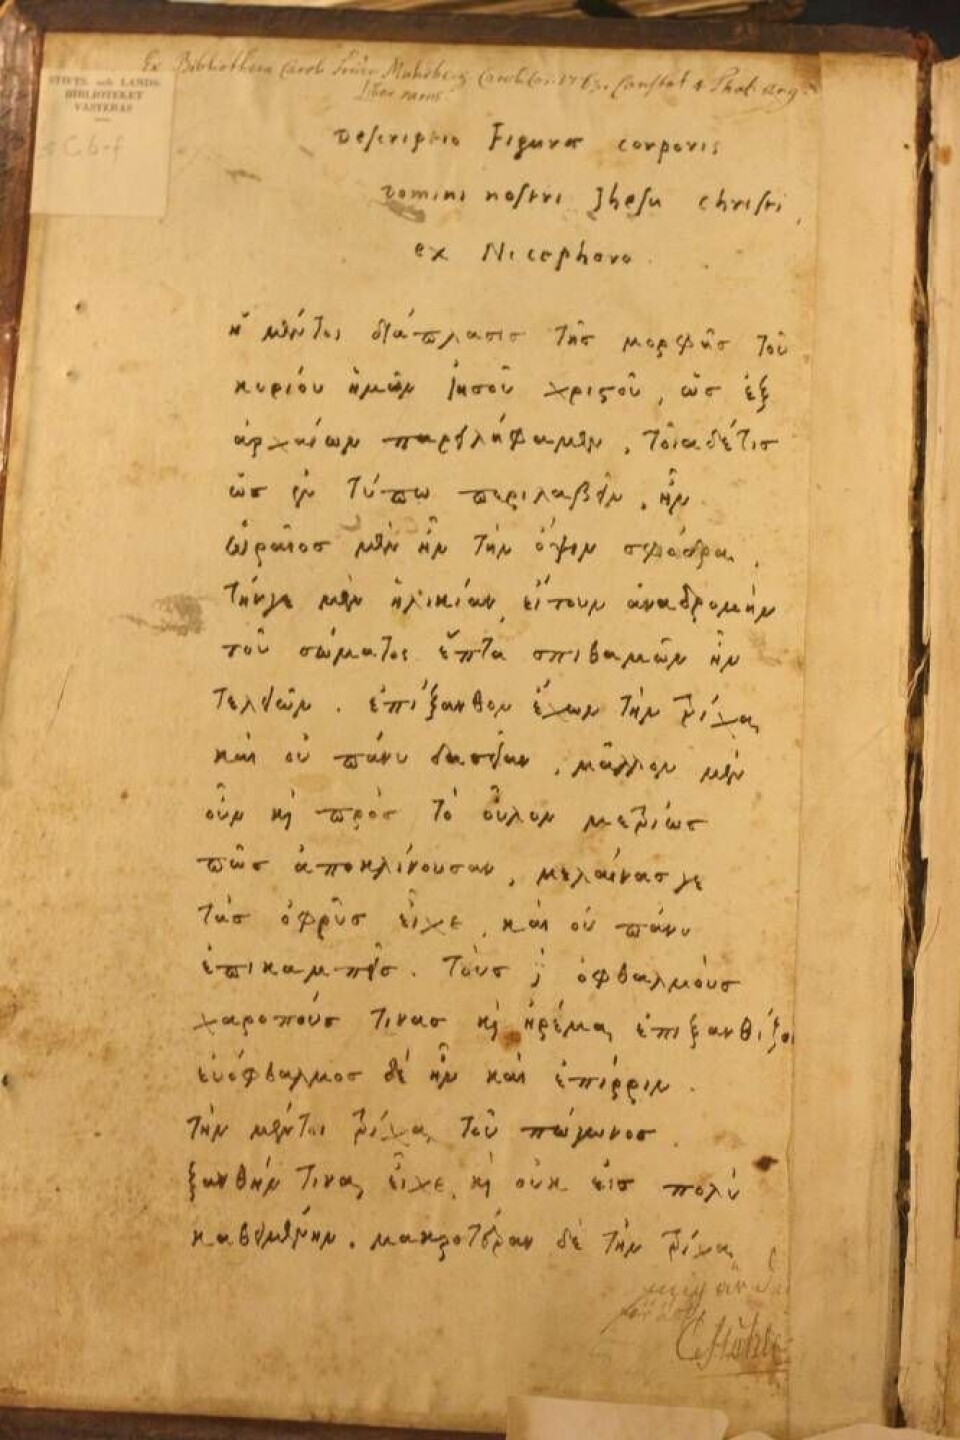 Ex Bibliotheca Carol Frider Muhrberg Carolclor. 1763. Constat 4 Phal. Arg.
Liber rarus.
STIFTS- och LANDS-
BIBLIOTEKET
VÄSTERÅS
Descriptio Figuræ corporis
Domini nostri Jhesu christi,
ex Nicephoro.
ἡ μέντοι διάπλασις τῆς μορφῆς τοῦ
κυρίου ἡμῶν ἰησοῦ χριστοῦ, ὡς ἐξ
ἀρχαίων παρειλήφαμεν, τοιαδέτις
ὡς ἐν τύπω περιλαβεῖν, ἦν
ὡραῖος μὲν ἦν τὴν ὄψιν σφόδρα.
τήνγε μὲν ἡλικίαν, εἴτουν ἀναδρομὴν
τοῦ σώματος ἕπτα σπιθαμῶν ἦν
τελείων. ἐπίξανθον ἔχων τὴν τρίχα,
καὶ οὐ πάνυ δασεῖαν, μᾶλλον μὲν
οὖν κὶ πρὸς τὸ οὖλον μετρίως
πῶς ἀποκλίνουσαν, μελαίνας γε
τὰς ὀφρῦς εἶχε, καὶ οὐ πάνυ
ἐπικαμπεῖς. τοὺς δὲ ὀφθαλμοὺς
χαροπούς τινας κὶ ἠρέμα, ἐπιξανθίζο
εὐόφθαλμος δέ ἦν καὶ ἐπίρριν.
τὴν μέντοι τρίχα, τοῦ πώγωνος
ξανθήν τινα, εἶχε, κὶ οὐκ εἰς πολὺ
καθειμένην. μακροτέραν δὲ τὴν τρίχα,